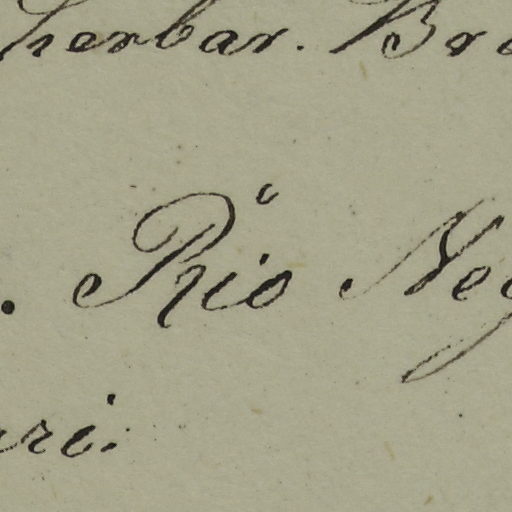 herbar. Bra
. Rio Neg
ari.